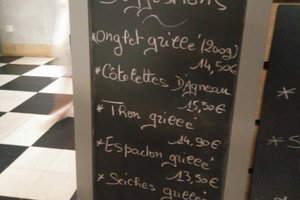 Suggestions
*Onglet grillé (200g)
14,50€
*Côtelettes D'Agneau
15,50€
*Thon grillé
14,90€
*Espadon grillé
13,50€
*Seiches grillé
*
*